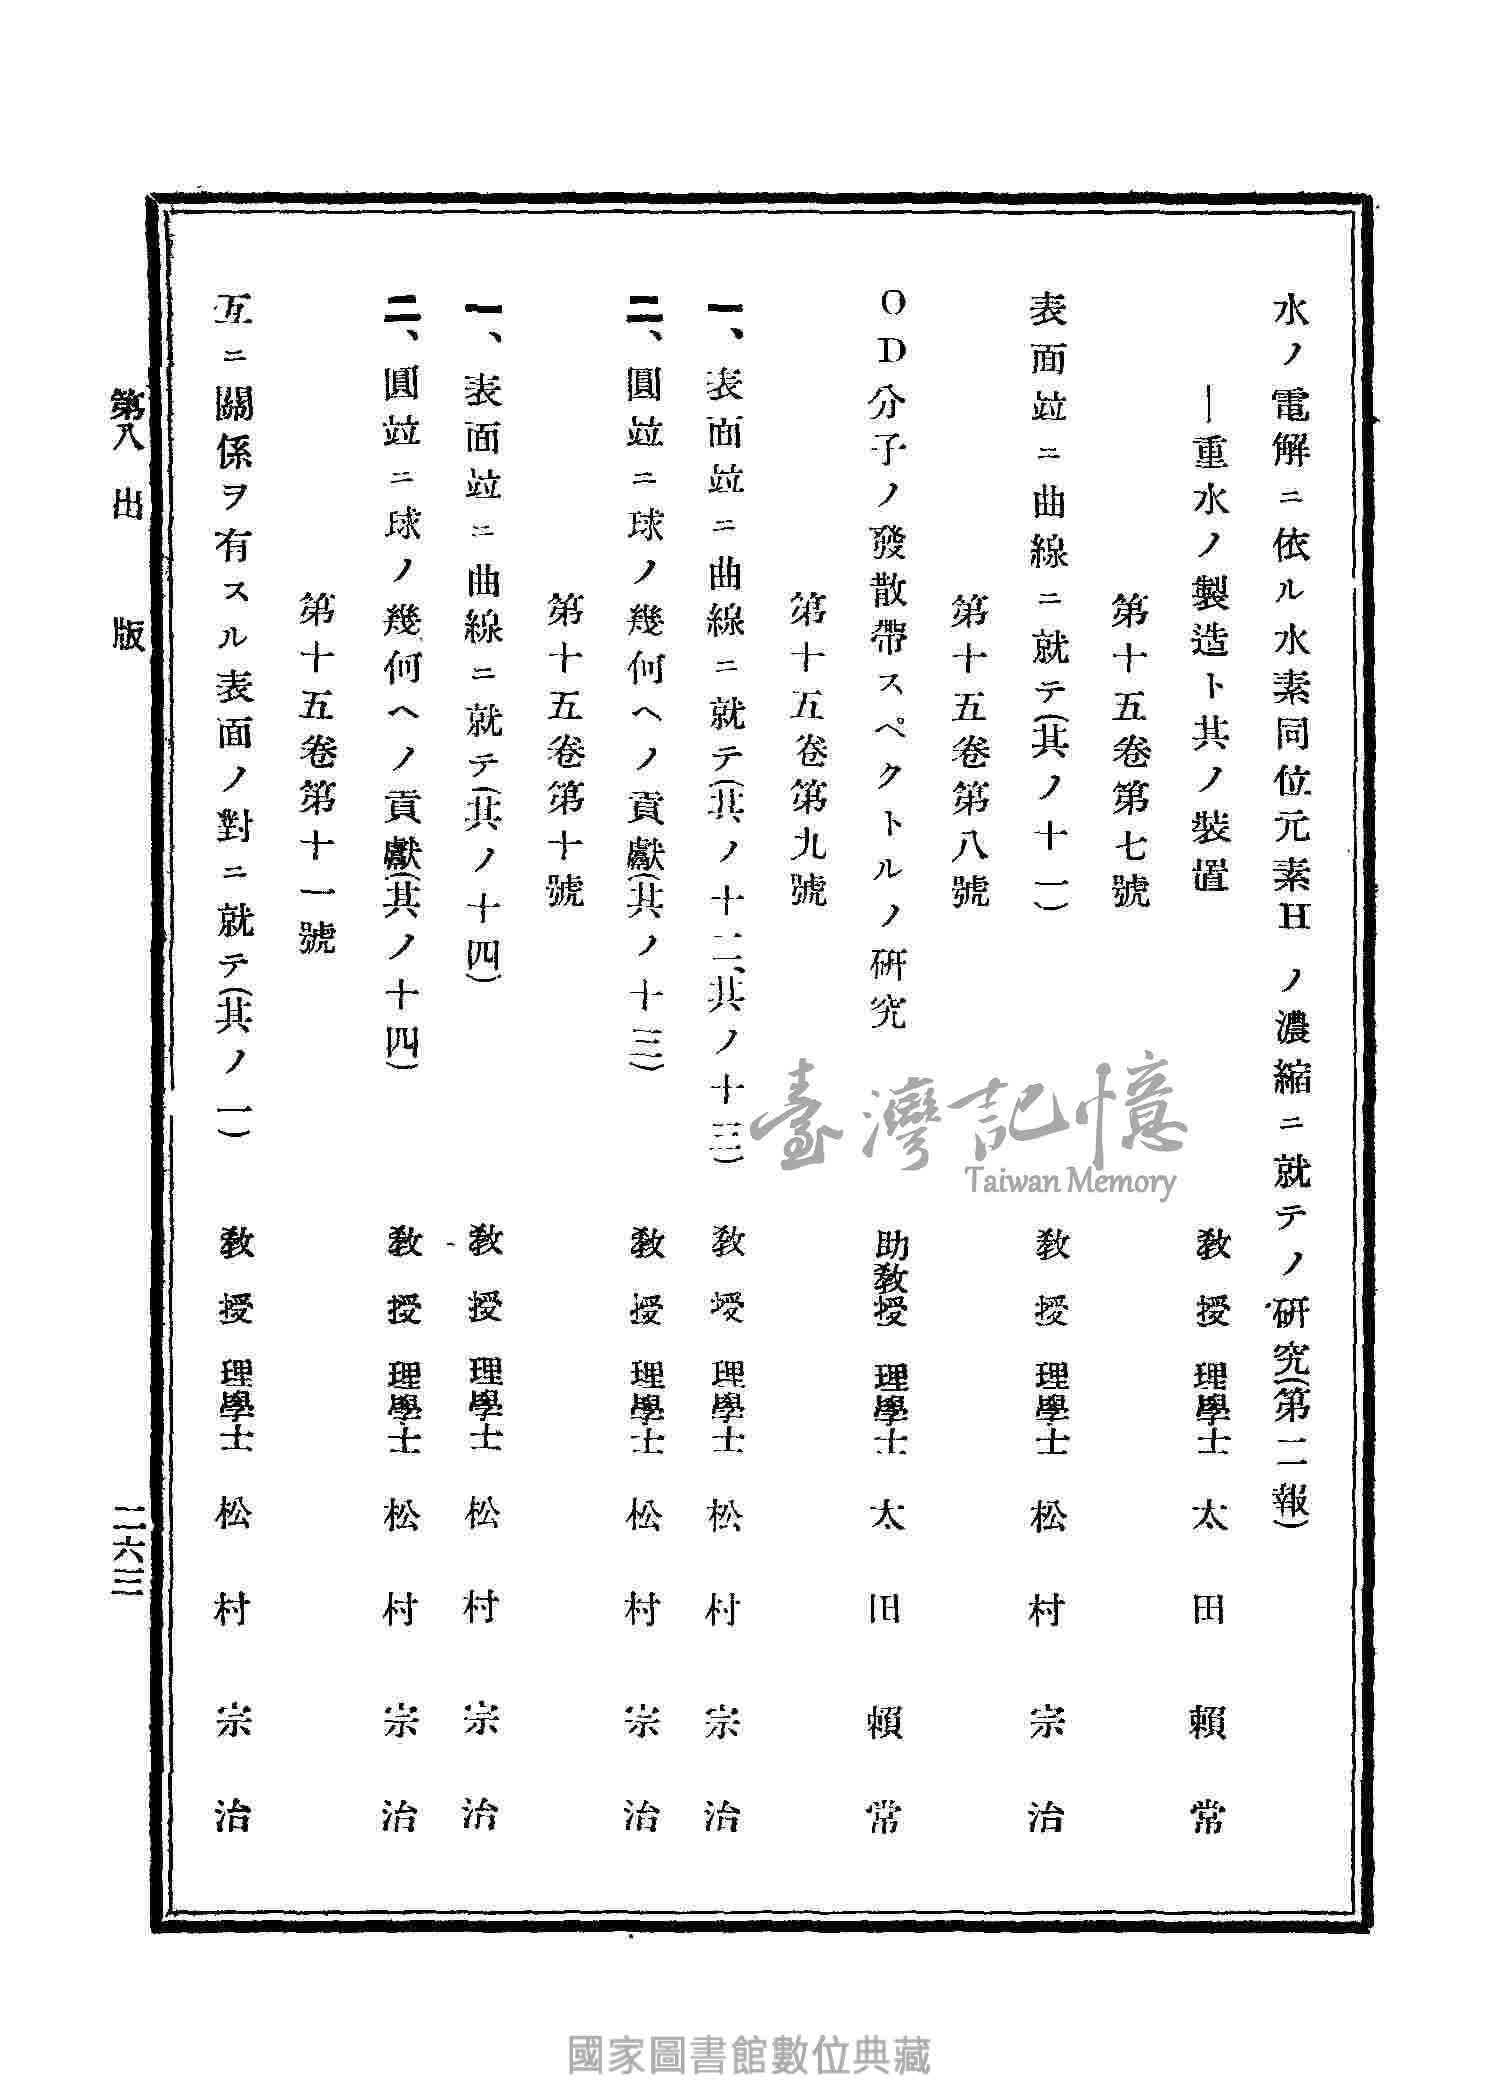 水ノ電解ニ依ル水素同位元素H ノ濃縮ニ就テノ研究(第二報)
―重水ノ製造ト其ノ裝置 教授 理學士 太田賴常
第十五卷第七號
表面竝ニ曲線ニ就テ(其ノ十一) 教授 理學士 松村宗治
第十五卷第八號
OD分子ノ發散帶スペクトルノ研究 助教授 理學士 太田賴常
第十五卷第九號
一、表面竝ニ曲線ニ就テ(其ノ十二、其ノ十三) 教授 理學士 松村宗治
二、圓竝ニ球ノ幾何ヘノ貢獻(其ノ十三) 教授 理學士 松村宗治
第十五卷第十號
一、表面竝ニ曲線ニ就テ(其ノ十四) 教授 理學士 松村宗治
二、圓竝ニ球ノ幾何ヘノ貢獻(其ノ十四) 教授 理學士 松村宗治
第十五卷第十一號
互ニ關係ヲ有スル表面ノ對ニ就テ(其ノ一) 教授 理學士 松村宗治
第八 出版 二六三
臺灣記憶
Taiwan Memory
國家圖書館數位典藏